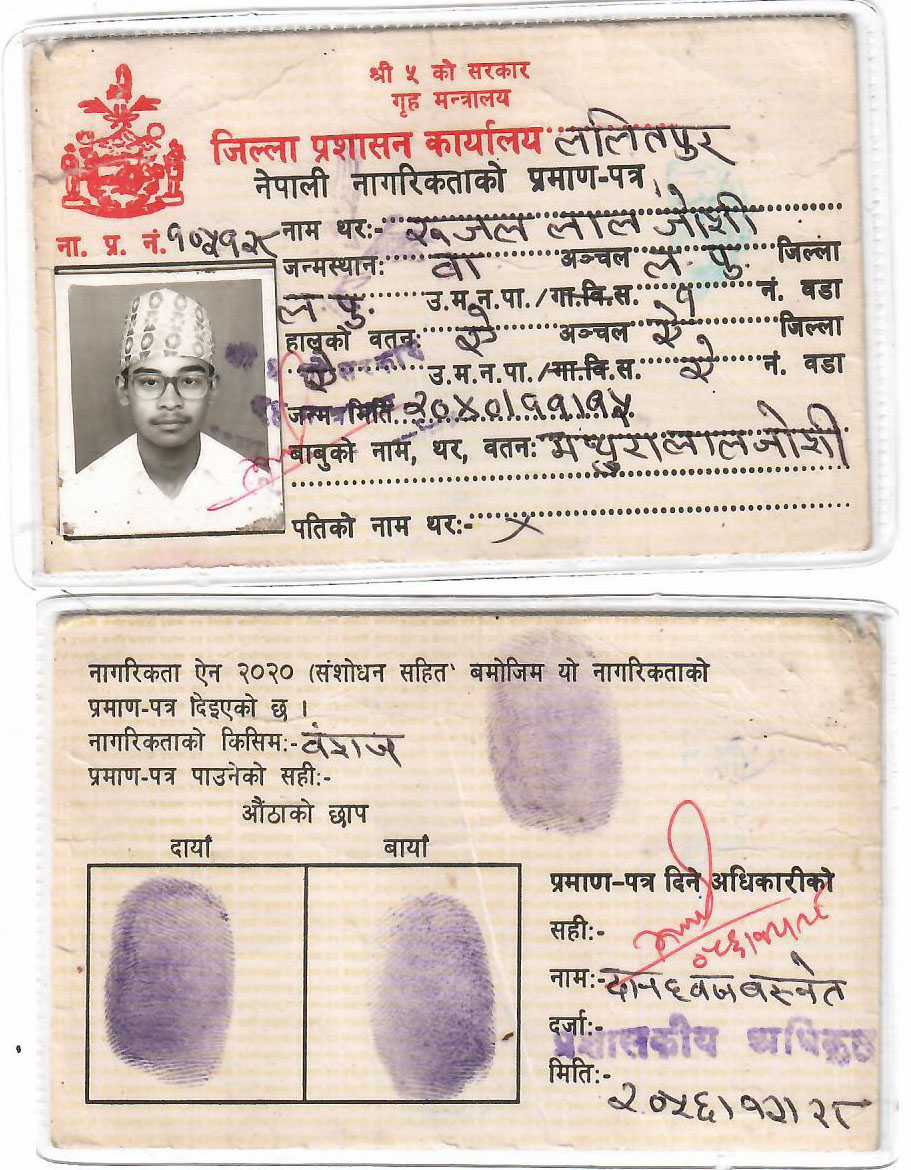 श्री ५ को सरकार
गृह मन्त्रालय
जिल्ला प्रशासन कार्यालय ललितपुर
नेपाली नागरिकताको प्रमाण-पत्र
ना. प्र. नं.
नाम थर:- लाल जोशी
जन्मस्थान: वा अञ्चल ल. पु. जिल्ला
ल. पु. उ.म.न.पा./गा.वि.स. १ नं. वडा
हालको वतन: ऐ अञ्चल ऐ जिल्ला
ऐ उ.म.न.पा./गा.वि.स. ऐ नं. वडा
जन्म मिति २०४०।११।१५
बाबुको नाम, थर, वतन: मथुरालाल जोशी
पतिको नाम थर:- ×
नागरिकता ऐन २०२० (संशोधन सहित' बमोजिम यो नागरिकताको
प्रमाण-पत्र दिइएको छ ।
नागरिकताको किसिम:- वंशज
प्रमाण-पत्र पाउनेको सही:-
औंठाको छाप
दायाँ बायाँ
प्रमाण-पत्र दिने अधिकारीको
सही:-
नाम:- दानध्वज बस्नेत
दर्जा:- प्रशासकीय अधिकृत
मिति:-
२०५६।१२।२८